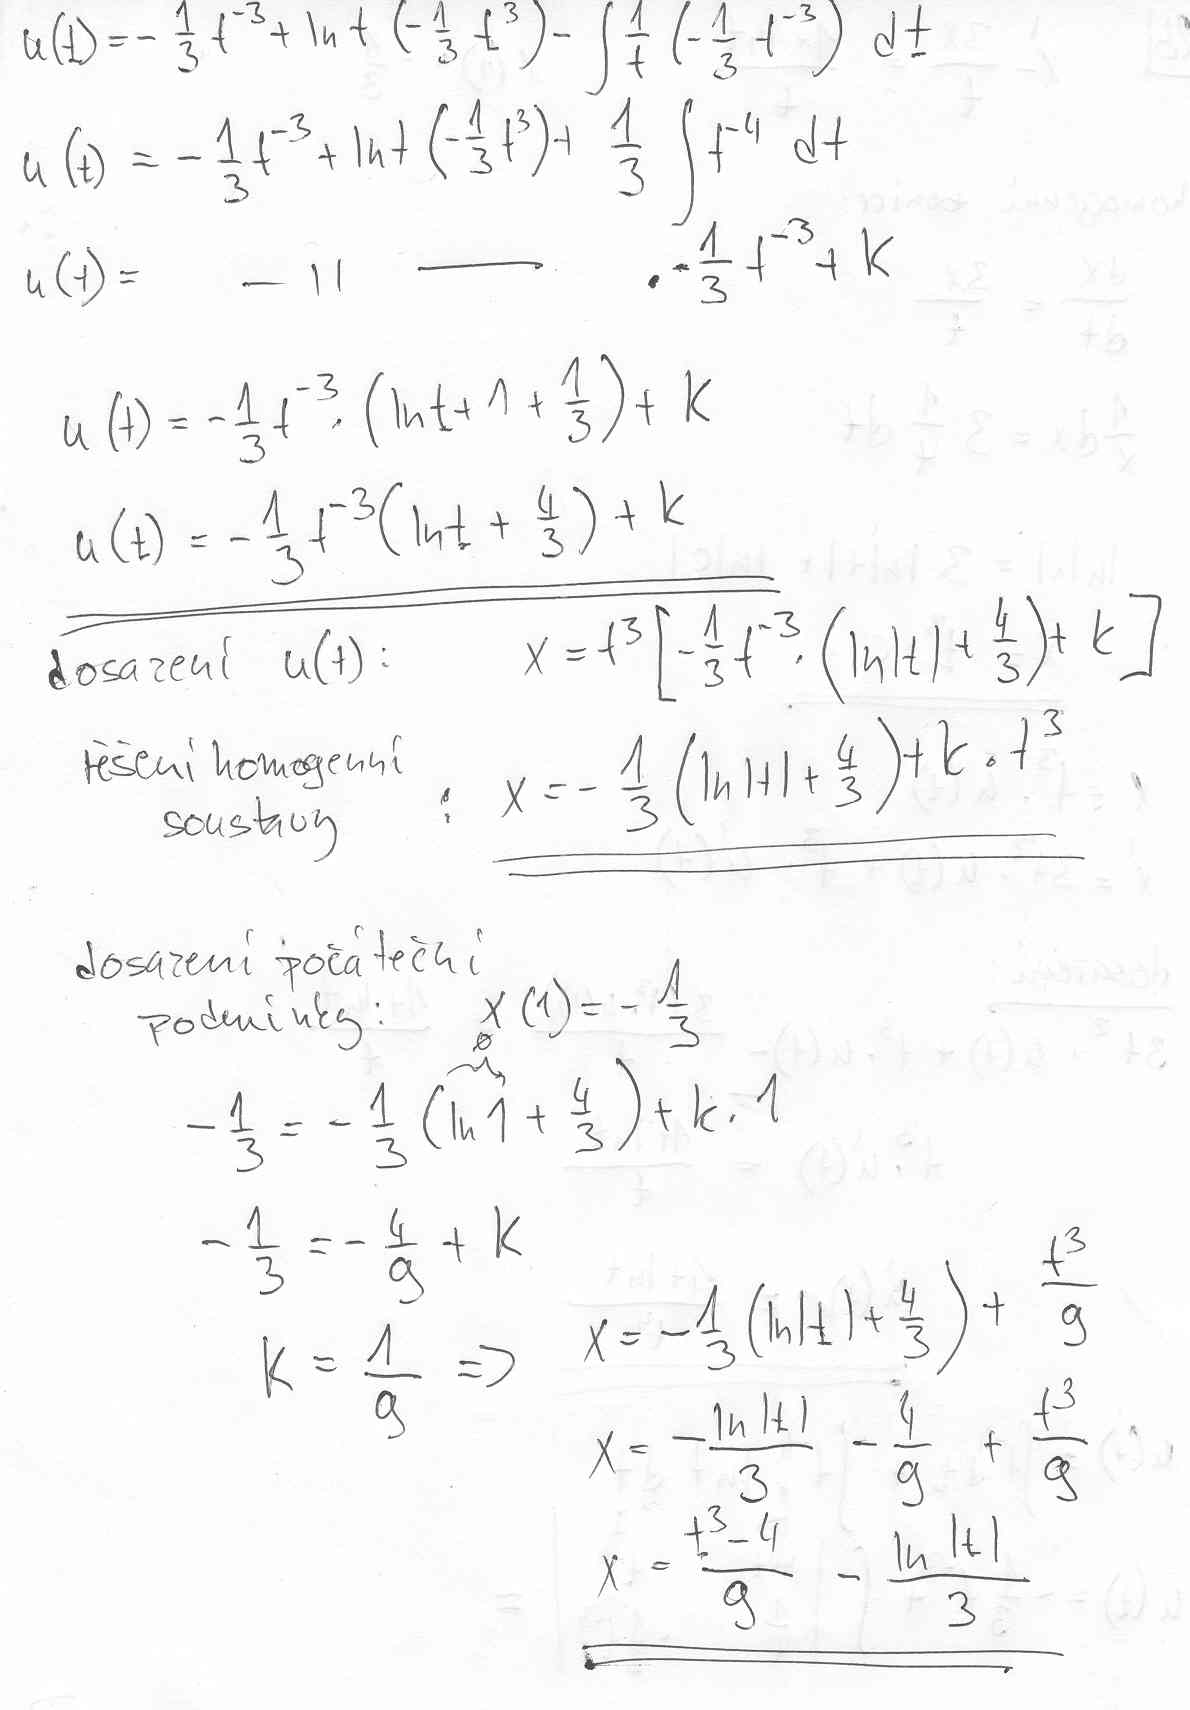 u(t) = - 1/3 t^-3 + ln t (- 1/3 t^3) - ∫ 1/t (- 1/3 t^-3) dt
u(t) = - 1/3 t^-3 + ln t (- 1/3 t^3) + 1/3 ∫ t^-4 dt
u(t) = — 11 — . - 1/3 t^-3 + K
u(t) = - 1/3 t^-3 . (ln t + 1 + 1/3) + K
u(t) = - 1/3 t^-3 (ln t + 4/3) + k
dosazení u(t): x = t^3 [- 1/3 t^-3 . (ln|t| + 4/3) + k]
řěšení homogenní
soustavy : x = - 1/3 (ln|t| + 4/3) + k . t^3
dosazení počáteční
podmínky: x(1) = - 1/3
0
- 1/3 = - 1/3 (ln 1 + 4/3) + k . 1
- 1/3 = - 4/9 + K
K = 1/9 => x = - 1/3 (ln|t| + 4/3) + t^3/9
x = - ln|t|/3 - 4/9 + t^3/9
x = t^3-4/9 - ln|t|/3